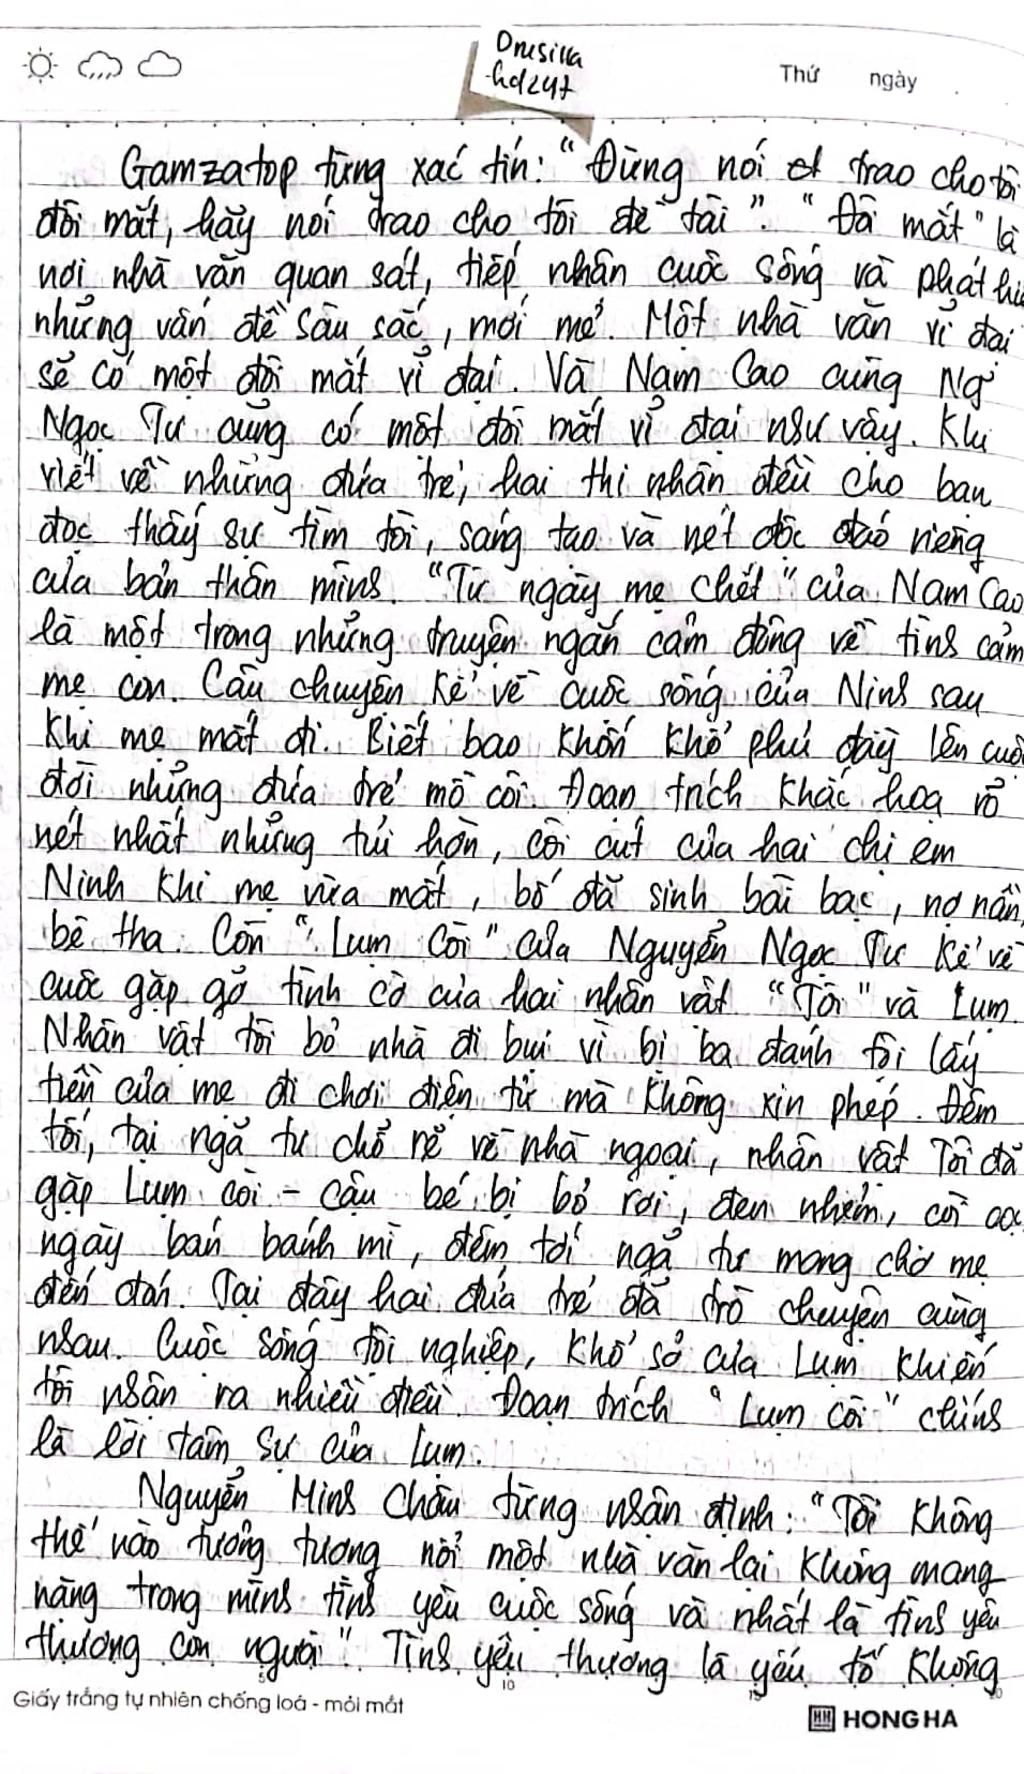 Drusilla
-hd247
Thứ ngày
Gamzatop từng xác tín: "Đừng nói trao cho tôi
đôi mắt, hãy nói trao cho tôi đề tài". "Đôi mắt" là
nơi nhà văn quan sát, tiếp nhận cuộc sống và phát hiệ
những vấn đề sâu sắc, mới mẻ. Một nhà văn vĩ đại
sẽ có một đôi mắt vĩ đại. Và Nam Cao cùng Ng~
Ngọc Tư cũng có một đôi mắt vĩ đại như vậy. Khi
viết về những đứa trẻ, hai thi nhân đều cho bạn
đọc thấy sự tìm tòi, sáng tạo và nét độc đáo riêng
của bản thân mình. "Từ ngày mẹ chết" của Nam Cao
là một trong những truyện ngắn cảm động về tình cảm
mẹ con. Câu chuyện kể về cuộc sống của Ninh sau
khi mẹ mất đi. Biết bao khốn khổ phủ đầy lên cuộ
đời những đứa trẻ mồ côi. Đoạn trích khắc hoạ rõ
nét nhất những tủi hờn, côi cút của hai chị em
Ninh khi mẹ vừa mất, bố đã sinh bài bạc, nợ nần,
bê tha. Còn "Lụm Còi" của Nguyễn Ngọc Tư kể về
cuộc gặp gỡ tình cờ của hai nhân vật "Tôi" và Lụm.
Nhân vật tôi bỏ nhà đi bụi vì bị ba đánh tội lấy
tiền của mẹ đi chơi điện tử mà không xin phép. Đêm
tối, tại ngã tư chỗ rẽ về nhà ngoại, nhân vật Tôi đã
gặp Lụm còi - cậu bé bị bỏ rơi, đen nhẻm, còi cọc
ngày bán bánh mì, đêm tới ngã tư mong chờ mẹ
đến đón. Tại đây hai đứa trẻ đã trò chuyện cùng
nhau. Cuộc sống tội nghiệp, khổ sở của Lụm khiến
tôi nhận ra nhiều điều. Đoạn trích "Lụm còi" chính
là lời tâm sự của Lụm.
Nguyễn Minh Châu từng nhận định: "Tôi không
thể nào tưởng tượng nổi một nhà văn lại không mang
nặng trong mình tình yêu cuộc sống và nhất là tình yêu
thương con người". Tình yêu thương là yếu tố không
5 10 15 20
Giấy trắng tự nhiên chống loá - mỏi mắt
HH HONG HA